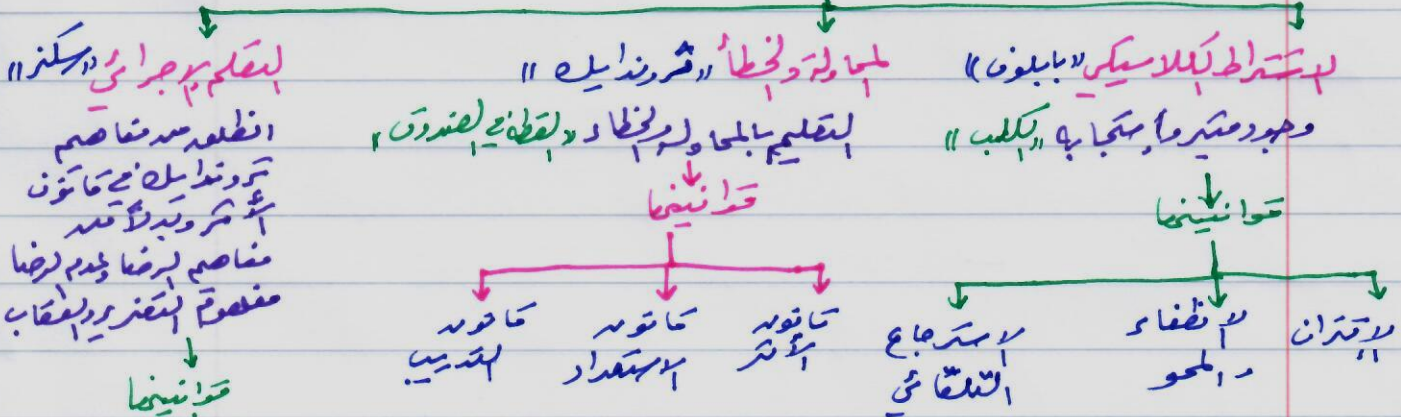 الاشتراط الكلاسيكي "بابلوف"
وجود مثير وإستجابة "الكلب"
قوانينها
الإقتران
الانطفاء
والمحو
الاسترجاع
التلقائي
المحاولة والخطأ "ثروندايك"
التعليم بالمحاولة والخطاء "القطة في الصندوق"
قوانينها
قانون
الأثر
قانون
الاستعداد
قانون
التدريب
التعلم الإجرائي "سكنر"
انطلق من مفاهيم
ثروندايك في قانون
الأثر وبدلاً من
مفاهيم الرضا وعدم الرضا
مفهوم التعزيز والعقاب
قوانينها